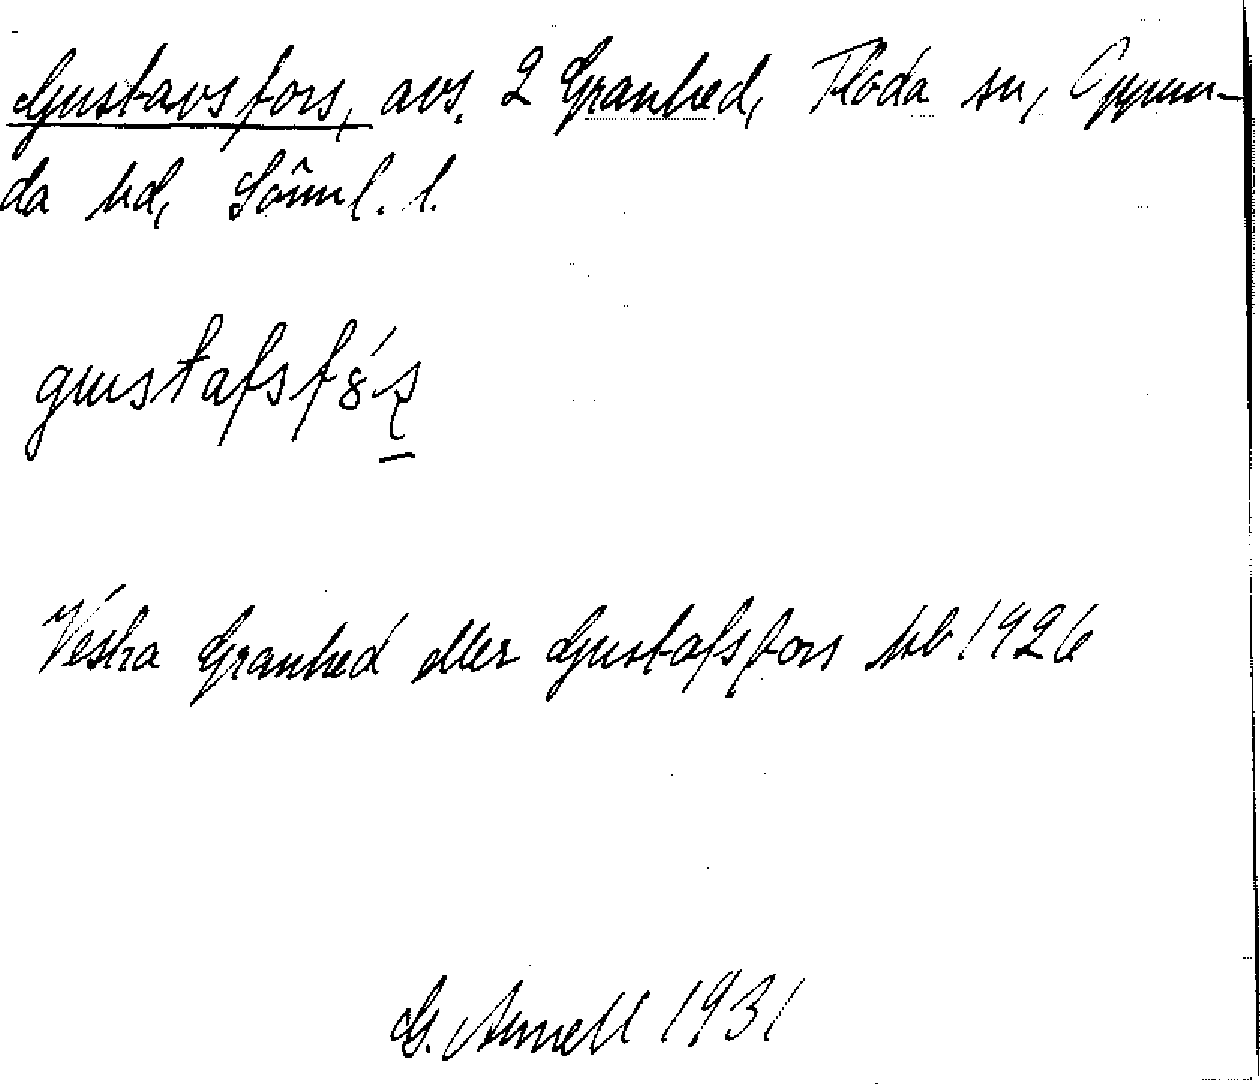 Gustavsfors, avs. 2 Granhed, Floda sn, Oppun-
da hd, Söml. l.
gustafsfȣ́ʂ
Västra Granhed eller Gustafsfors kb 1926
G. Arnell 1931